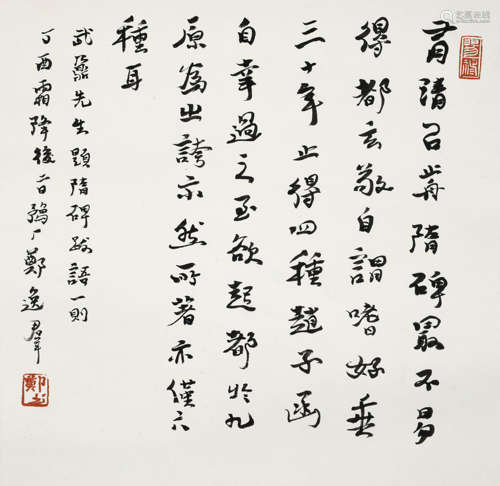 清 隋碑最不易
得都玄敬自謂嗜好垂
三十年止得四種趙子函
自幸過之至欲起都於九
原為出誇示然所著亦僅六
種耳
武 先生題隋碑 語一則
丁酉霜降後 日 厂鄭逸羣